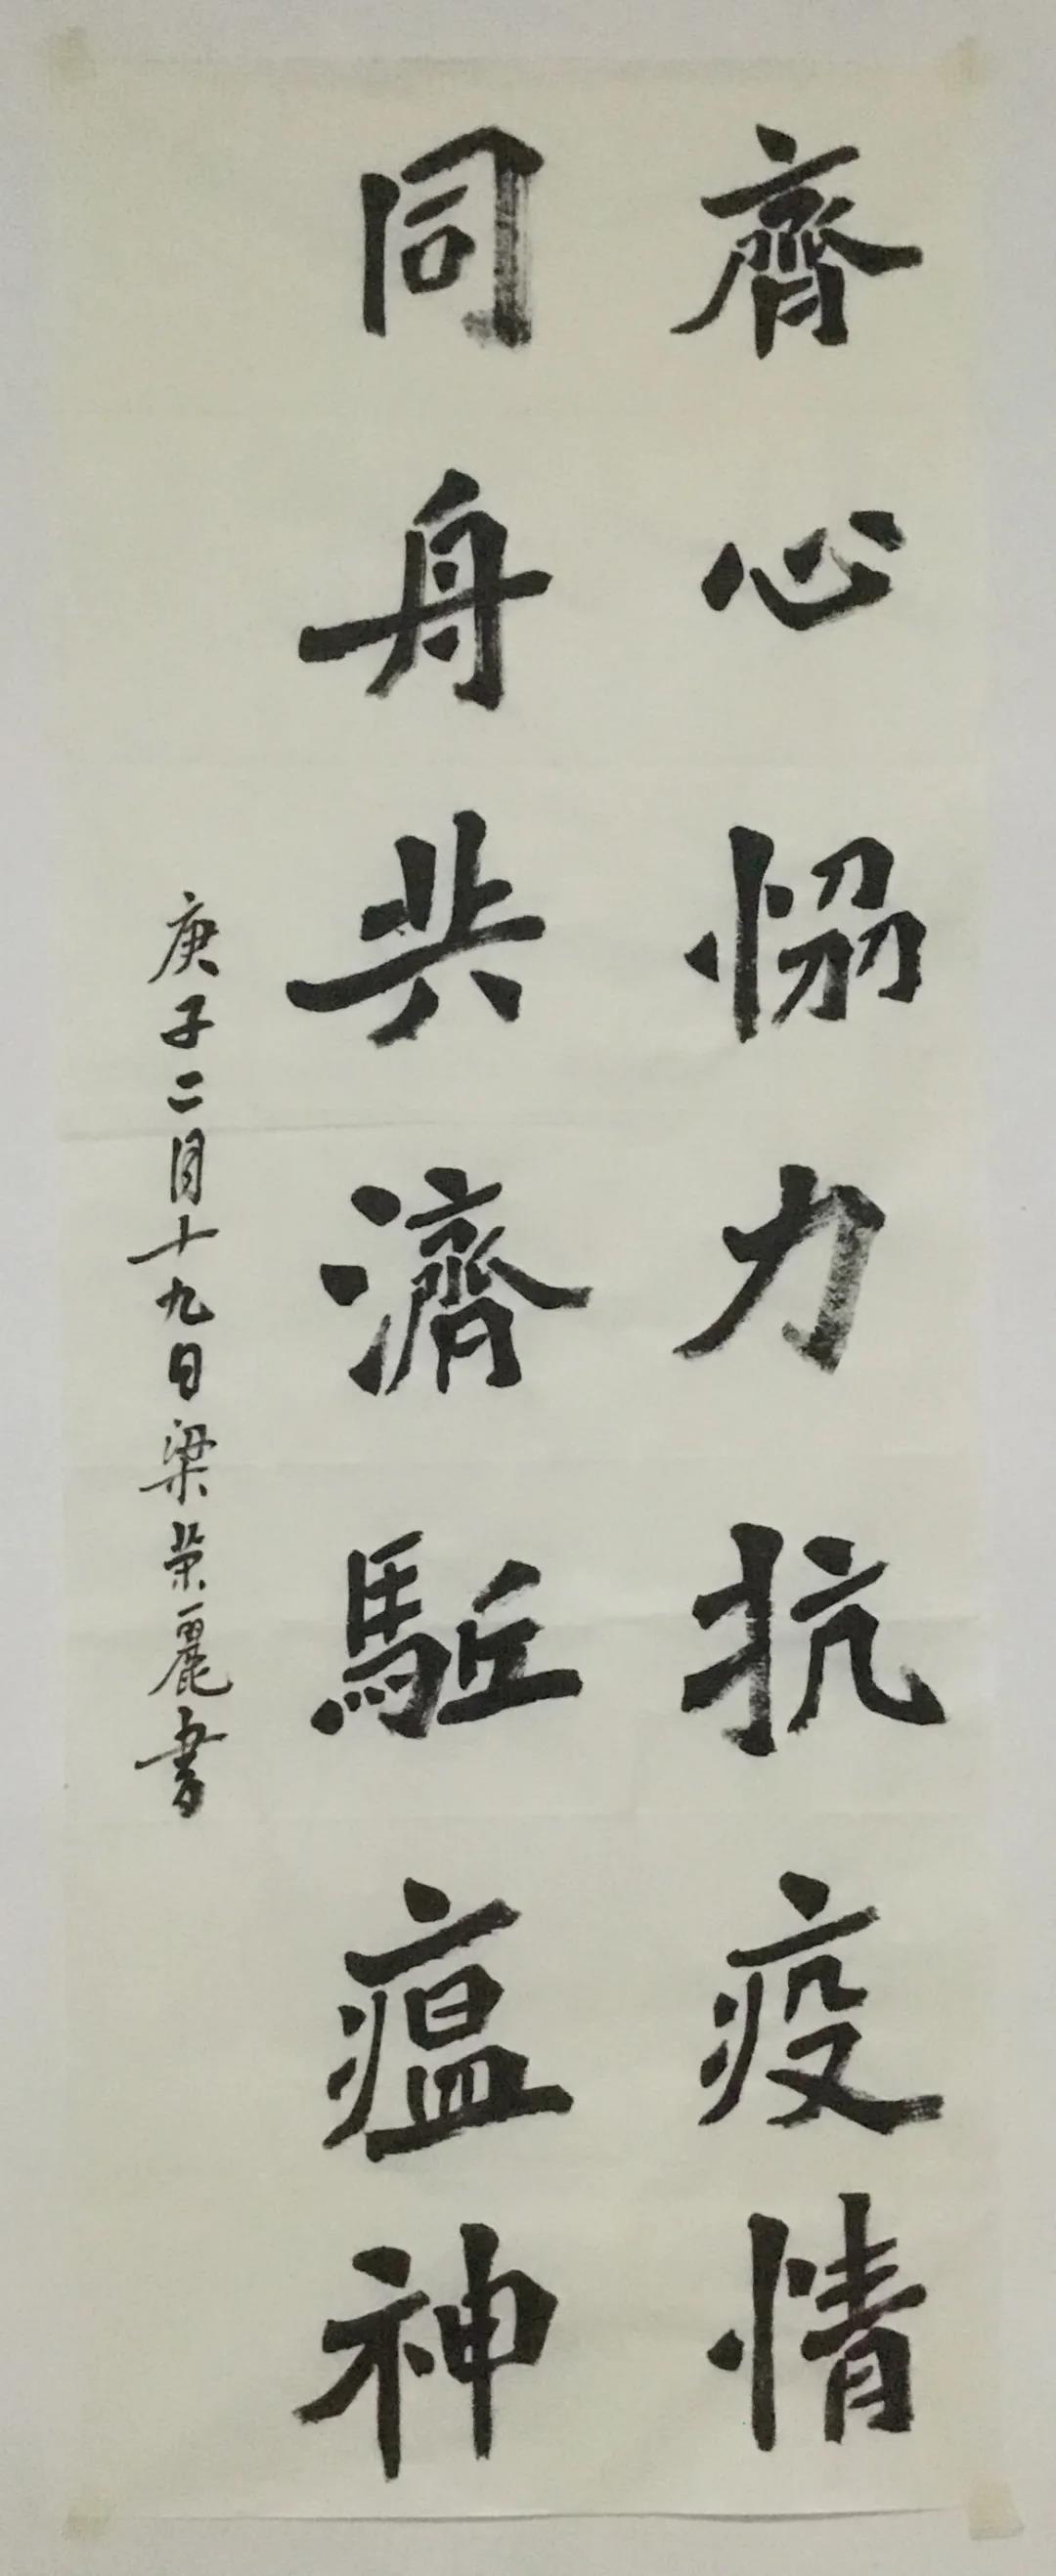 齊心恊力抗疫情
同舟共濟駈瘟神
庚子二月十九日梁荣麗書